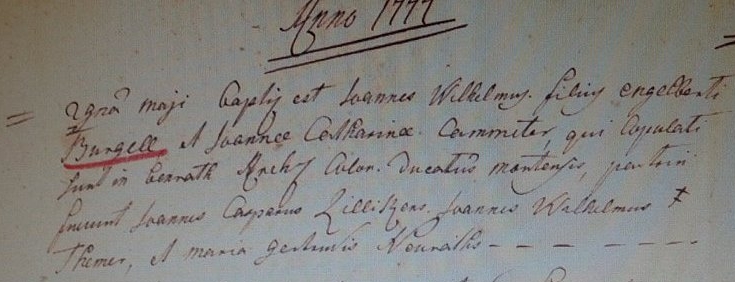 Anno 1777
maji baptis est Joannes Wilhelmus filius engelberti
Burgell et Joannae Catharinae Cammeter, qui Copulati
sunt in benrath Archis Colon. Ducatus montensis, patrini
fuerunt Joannes Casparus Zillikens Joannes Wilhelmus
Themer, et maria gertrudis Neuraths - - - - -